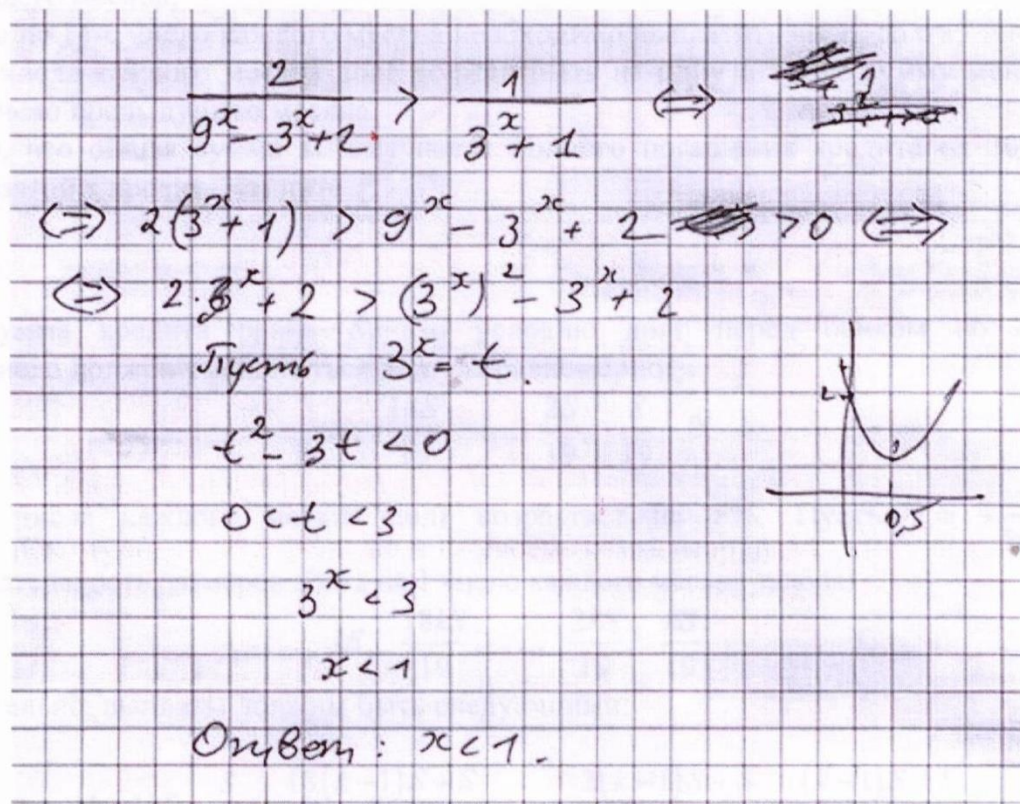 2/(9^x - 3^x + 2) > 1/(3^x + 1) ⇔
⇔ 2(3^x + 1) > 9^x - 3^x + 2 > 0 ⇔
⇔ 2·3^x + 2 > (3^x)^2 - 3^x + 2
Пусть 3^x = t.
t^2 - 3t < 0
0 < t < 3
3^x < 3
x < 1
Ответ: x < 1.
2
0,5